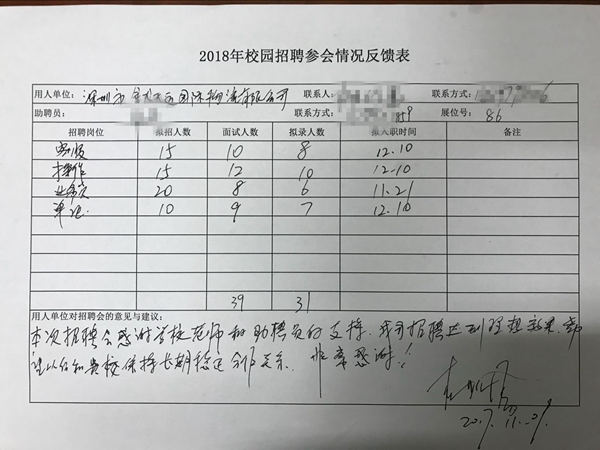 2018年校园招聘参会情况反馈表
用人单位: 深圳市 国际物流有限公司 联系人: 联系方式:
助聘员: 联系方式: 859 展位号: 86
招聘岗位 拟招人数 面试人数 拟录人数 拟入职时间 备注
客服 15 10 8 12.10
操作 15 12 10 12.10
业务员 20 8 6 11.21
单证 10 9 7 12.10
39 31
用人单位对招聘会的意见与建议:
本次招聘会感谢学校老师和助聘员的支持、我司招聘达到理想效果.希
望以后和贵校保持长期稳定合作关系. 非常感谢!
2017.11.01